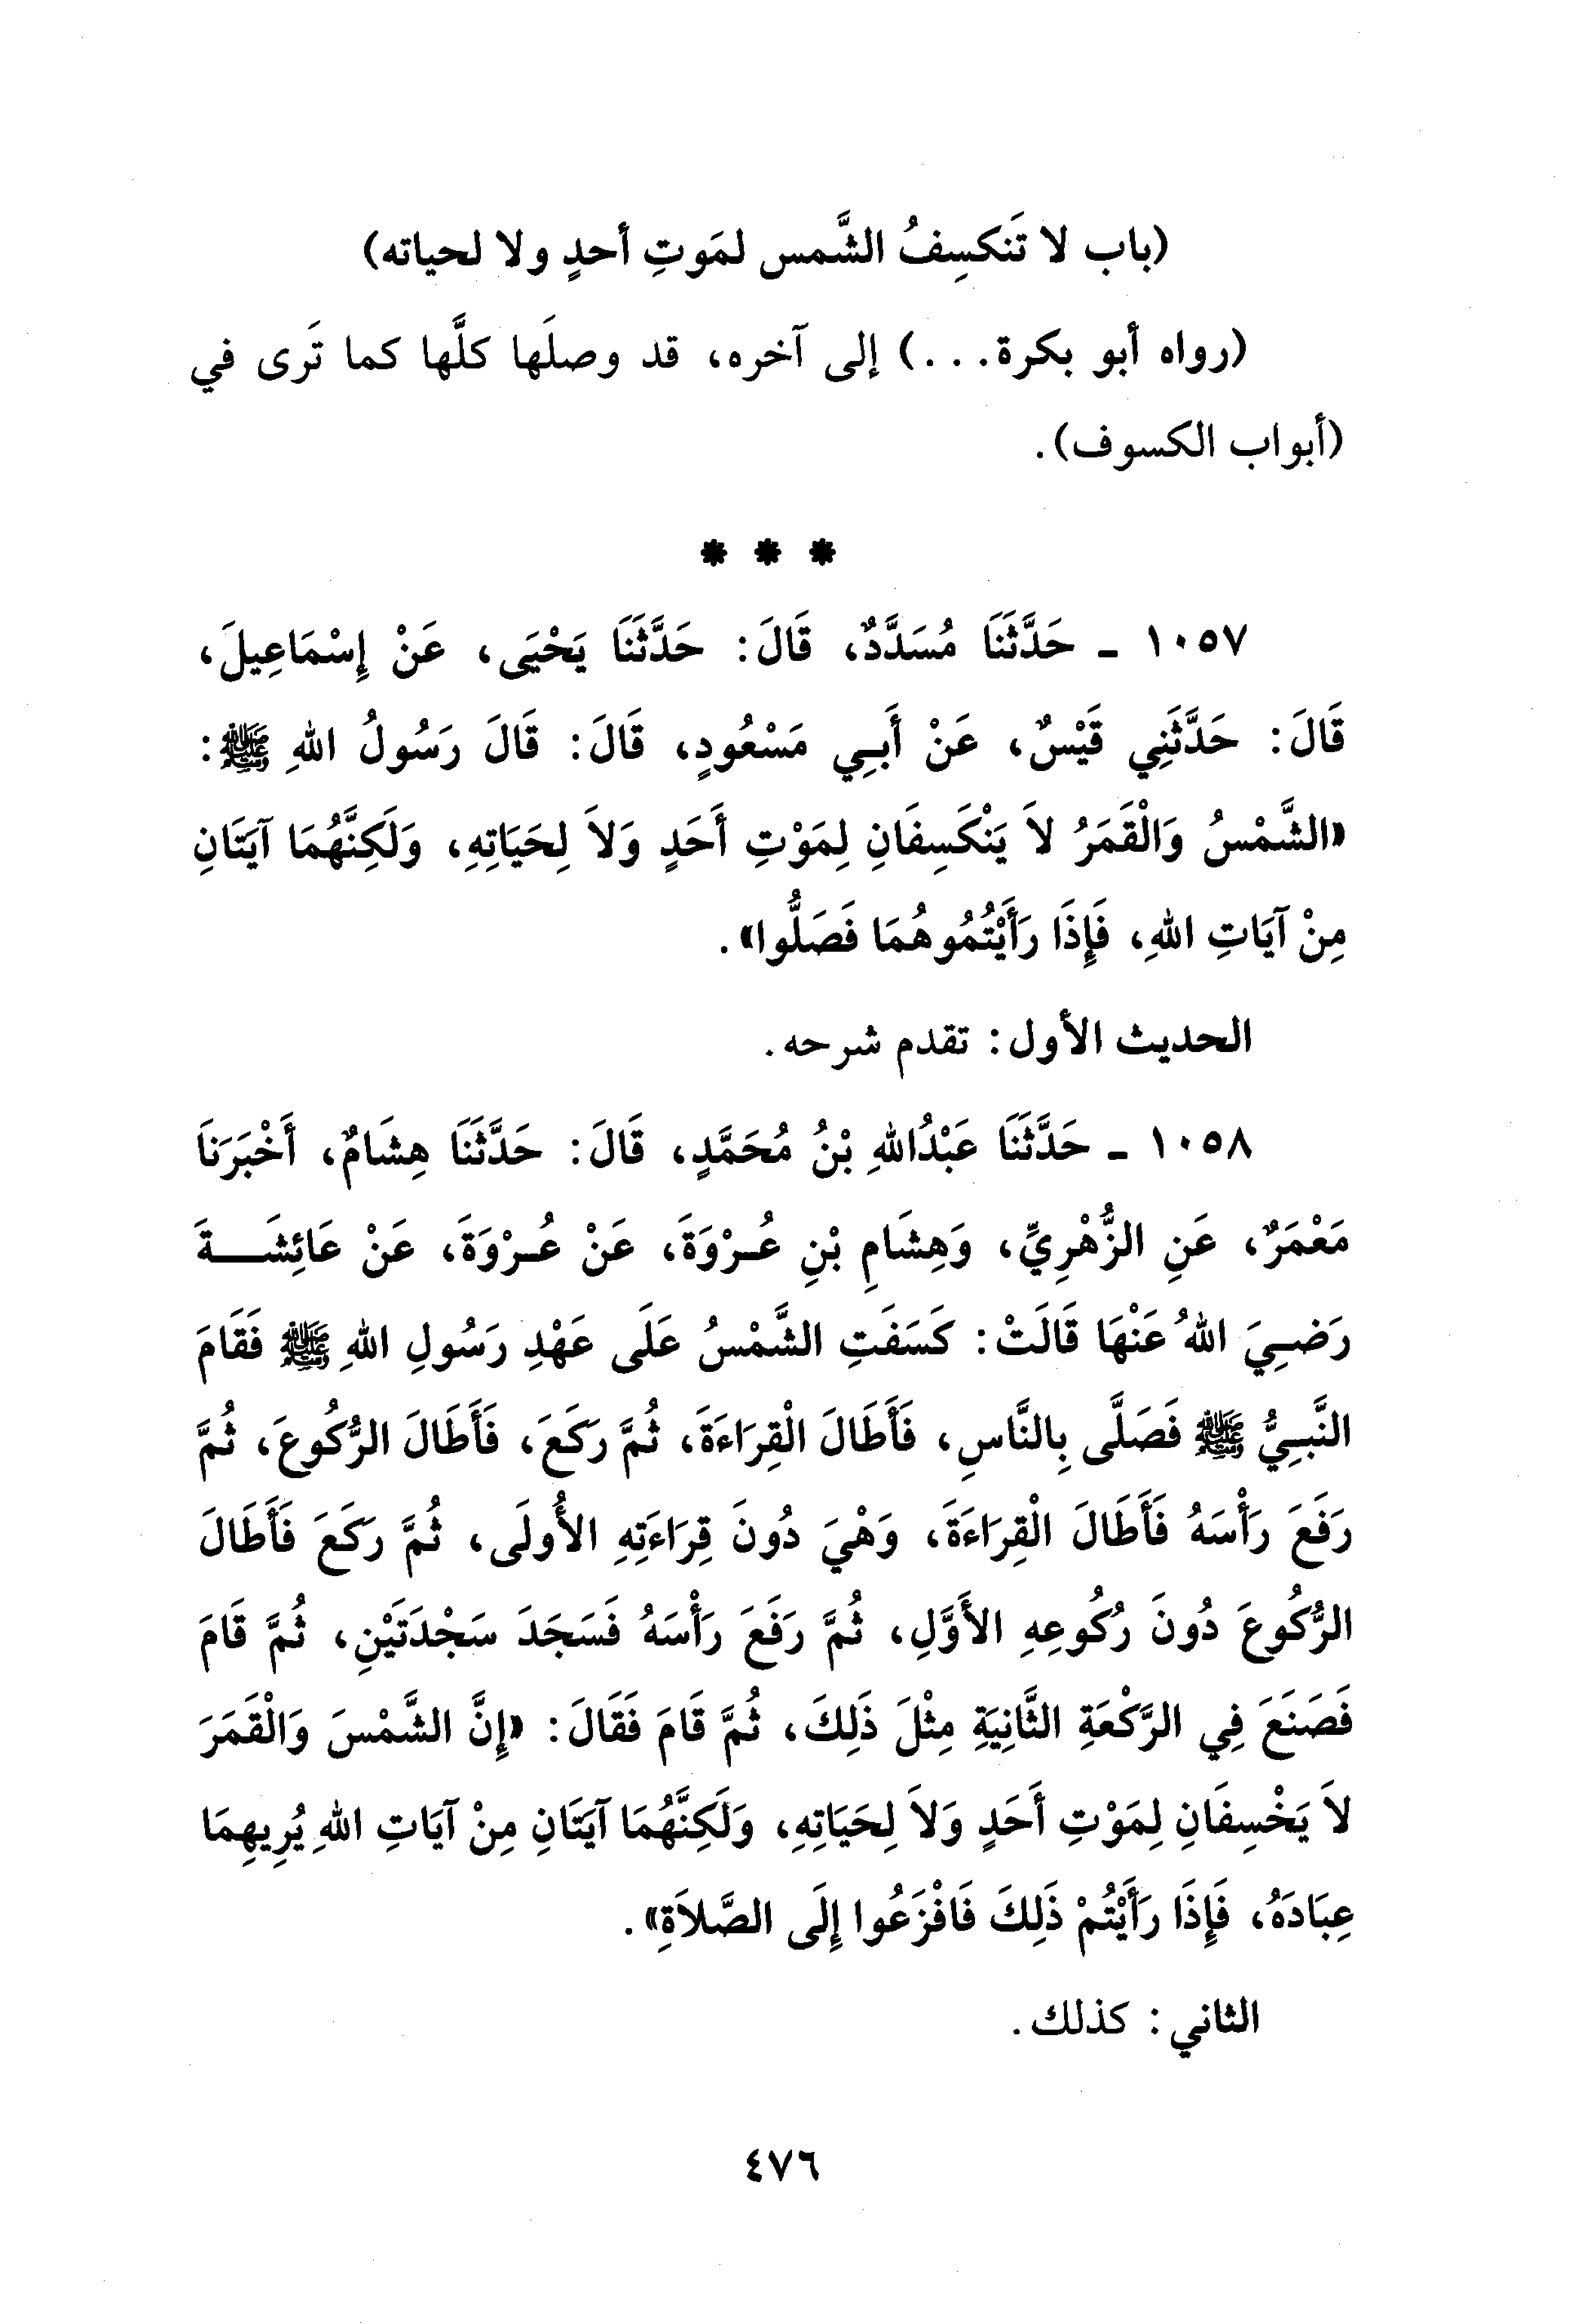 (باب لا تَنكسِفُ الشَّمس لمَوتِ أحدٍ ولا لحياته)
(رواه أبو بكرة. . .) إلى آخره، قد وصلَها كلَّها كما تَرى في
(أبواب الكسوف).
* * *
١٠٥٧ - حَدَّثَنَا مُسَدَّدٌ، قَالَ: حَدَّثَنَا يَحْيَى، عَنْ إِسْمَاعِيلَ،
قَالَ: حَدَّثَنِي قَيْسٌ، عَنْ أَبِي مَسْعُودٍ، قَالَ: قَالَ رَسُولُ اللهِ ﷺ:
«الشَّمْسُ وَالْقَمَرُ لاَ يَنْكَسِفَانِ لِمَوْتِ أَحَدٍ وَلاَ لِحَيَاتِهِ، وَلَكِنَّهُمَا آيَتَانِ
مِنْ آيَاتِ اللهِ، فَإِذَا رَأَيْتُمُوهُمَا فَصَلُّوا».
الحديث الأول: تقدم شرحه.
١٠٥٨ - حَدَّثَنَا عَبْدُاللهِ بْنُ مُحَمَّدٍ، قَالَ: حَدَّثَنَا هِشَامٌ، أَخْبَرَنَا
مَعْمَرٌ، عَنِ الزُّهْرِيِّ، وَهِشَامِ بْنِ عُـرْوَةَ، عَنْ عُـرْوَةَ، عَنْ عَائِشَـــةَ
رَضِيَ اللهُ عَنْهَا قَالَتْ: كَسَفَتِ الشَّمْسُ عَلَى عَهْدِ رَسُولِ اللهِ ﷺ فَقَامَ
النَّبِيُّ ﷺ فَصَلَّى بِالنَّاسِ، فَأَطَالَ الْقِرَاءَةَ، ثُمَّ رَكَعَ، فَأَطَالَ الرُّكُوعَ، ثُمَّ
رَفَعَ رَأْسَهُ فَأَطَالَ الْقِرَاءَةَ، وَهْيَ دُونَ قِرَاءَتِهِ الأُولَى، ثُمَّ رَكَعَ فَأَطَالَ
الرُّكُوعَ دُونَ رُكُوعِهِ الأَوَّلِ، ثُمَّ رَفَعَ رَأْسَهُ فَسَجَدَ سَجْدَتَيْنِ، ثُمَّ قَامَ
فَصَنَعَ فِي الرَّكْعَةِ الثَّانِيَةِ مِثْلَ ذَلِكَ، ثُمَّ قَامَ فَقَالَ: «إِنَّ الشَّمْسَ وَالْقَمَرَ
لاَ يَخْسِفَانِ لِمَوْتِ أَحَدٍ وَلاَ لِحَيَاتِهِ، وَلَكِنَّهُمَا آيَتَانِ مِنْ آيَاتِ اللهِ يُرِيهِمَا
عِبَادَهُ، فَإِذَا رَأَيْتُمْ ذَلِكَ فَافْزَعُوا إِلَى الصَّلاَةِ».
الثاني: كذلك.
٤٧٦